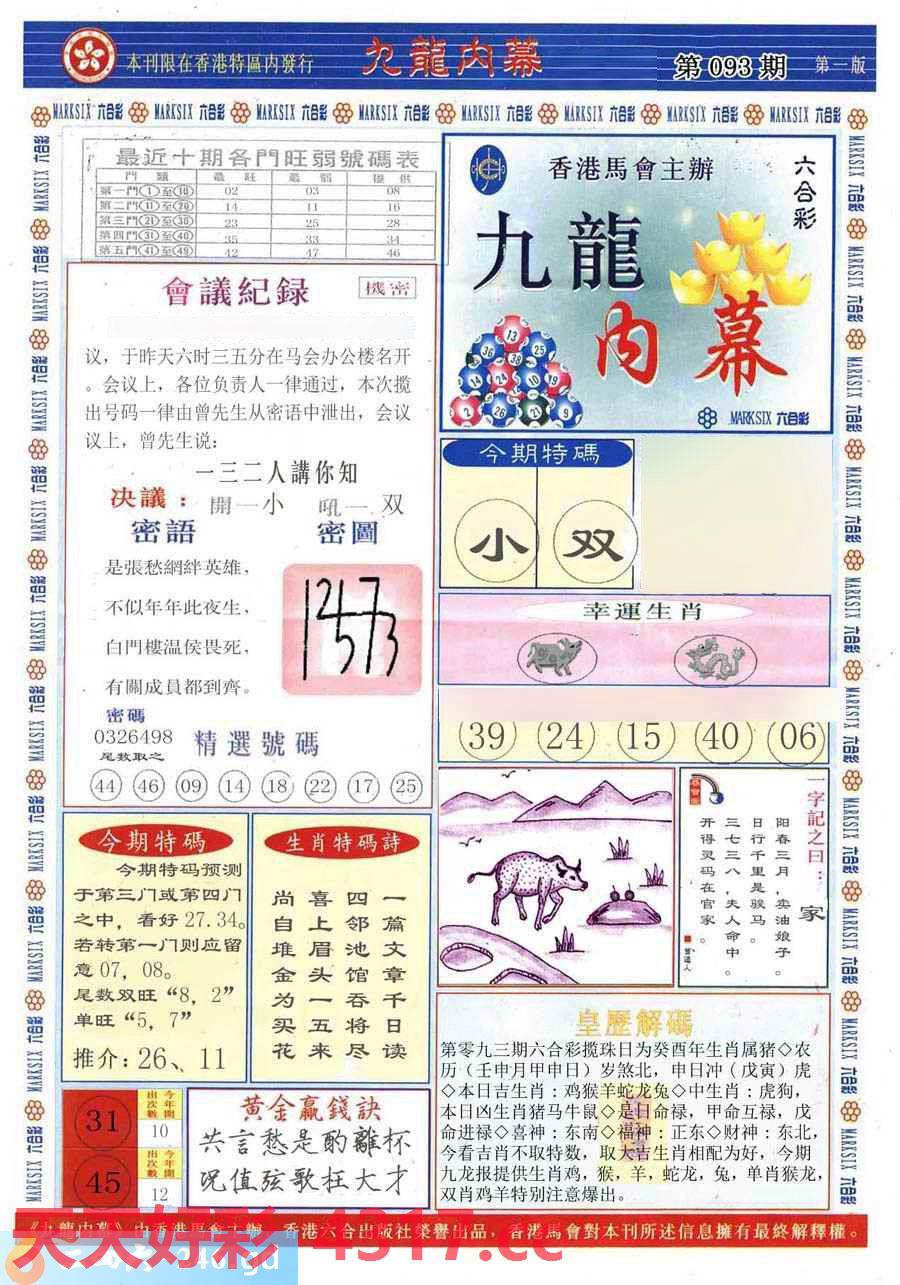 本刊限在香港特區内發行
九龍内幕
第 093 期
第一版
MARKSIX 六合彩
最近十期各門旺弱號碼表
門 類 最 旺 最 弱 提 供
第一門①至⑩ 02 03 08
第二門⑪至⑳ 14 11 16
第三門㉑至㉚ 23 25 28
第四門㉛至㊵ 35 33 34
第五門㊶至49 42 47 46
會議紀録
機密
议，于昨天六时三五分在马会办公楼名开
。会议上，各位负责人一律通过，本次揽
出号码一律由曾先生从密语中泄出，会议
议上，曾先生说：
一三二人講你知
决議： 開一小 吼一双
密語
是張愁網絆英雄，
不似年年此夜生，
白門樓温侯畏死，
有關成員都到齊。
密圖
密碼
0326498
尾数取之
精選號碼
44 46 09 14 18 22 17 25
香港馬會主辦
六合彩
九龍
内幕
13
36 38 25
14 24 10 19
2 26 21 9
MARKSIX 六合彩
今期特碼
小 双
幸運生肖
39 24 15 40 06
一字記之曰：家
阳春三月，卖油娘子。
日行千里是骏马。
三七三八，夫人命中。
开得灵码在官家。
曾道人
今期特碼
今期特码预测
于第三门或第四门
之中，看好 27.34。
若转第一门则应留
意 07，08。
尾数双旺“8，2”
单旺“5，7”
推介：26、11
生肖特碼詩
一篇文章千日读
四邻池馆吞将尽
喜上眉头一五来
尚自堆金为买花
31
今年開出次數
10
45
今年開出次數
12
黄金贏錢訣
共言愁是酌離杯
况值弦歌枉大才
皇歷解碼
第零九三期六合彩揽珠日为癸酉年生肖属猪◇农
历（壬申月甲申日）岁煞北，申日冲（戊寅）虎
◇本日吉生肖：鸡猴羊蛇龙兔◇中生肖：虎狗，
本日凶生肖猪马牛鼠◇是日命禄，甲命互禄，戊
命进禄◇喜神：东南◇福神：正东◇财神：东北，
今看吉肖不取特数，取大吉生肖相配为好，今期
九龙报提供生肖鸡，猴，羊，蛇龙，兔，单肖猴龙，
双肖鸡羊特别注意爆出。
《九龍内幕》由香港馬會主辦，香港六合出版社榮譽出品，香港馬會對本刊所述信息擁有最終解釋權。
天天好彩 4317.cc
246.gd